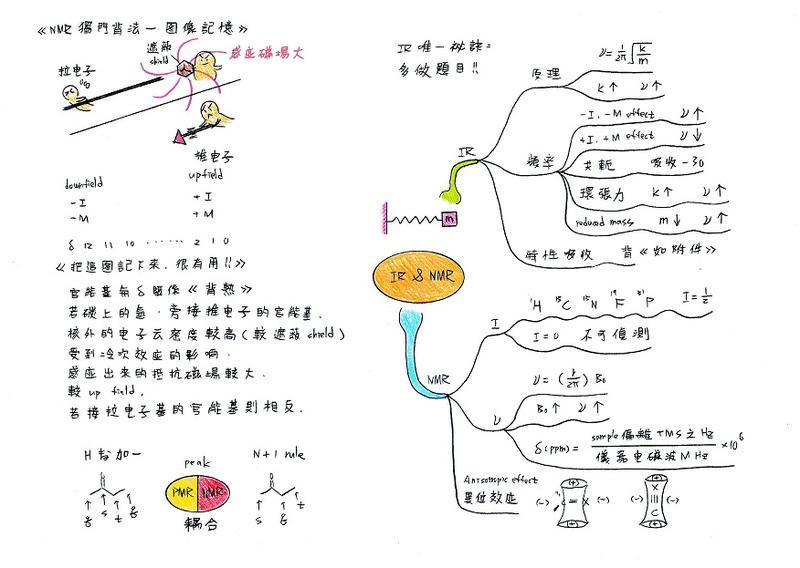 《NMR 獨門背法－圖像記憶》
遮蔽
shield
感应磁場大
拉电子
推电子
downfield
upfield
-I
+I
-M
+M
δ 12 11 10 ······ 2 1 0
《把這圖記下來,很有用!!》
官能基氫δ關係《背熟》
若碳上的氫,旁接推电子的官能基.
核外的电子云密度較高(較遮蔽 shield)
受到冷次效应的影响.
感应出來的抵抗磁場較大.
較 up field.
若接拉电子基的官能基則相反.
H 加一
peak
N+1 rule
PMR
NMR
耦合
s
t
s
t
IR 唯一祕訣:
多做題目!!
IR
原理
ν=1/2π√k/m
k↑ ν↑
頻率
-I. -M effect ν↑
+I. +M effect ν↓
共軛 吸收-30
環張力 k↑ ν↑
reduced mass m↓ ν↑
特性吸收 背《如附件》
m
IR & NMR
NMR
I
¹H ¹³C ¹⁵N ¹⁹F ³¹P I=1/2
I=0 不可偵測
ν
ν=(r/2π)B₀
B₀↑ ν↑
δ(ppm)= sample偏離TMS之Hz / 儀器电磁波MHz ×10⁶
Anisotropic effect
異位效应
(+)
(-) (-)
(+)
(+)
(-) (-)
C
(+)